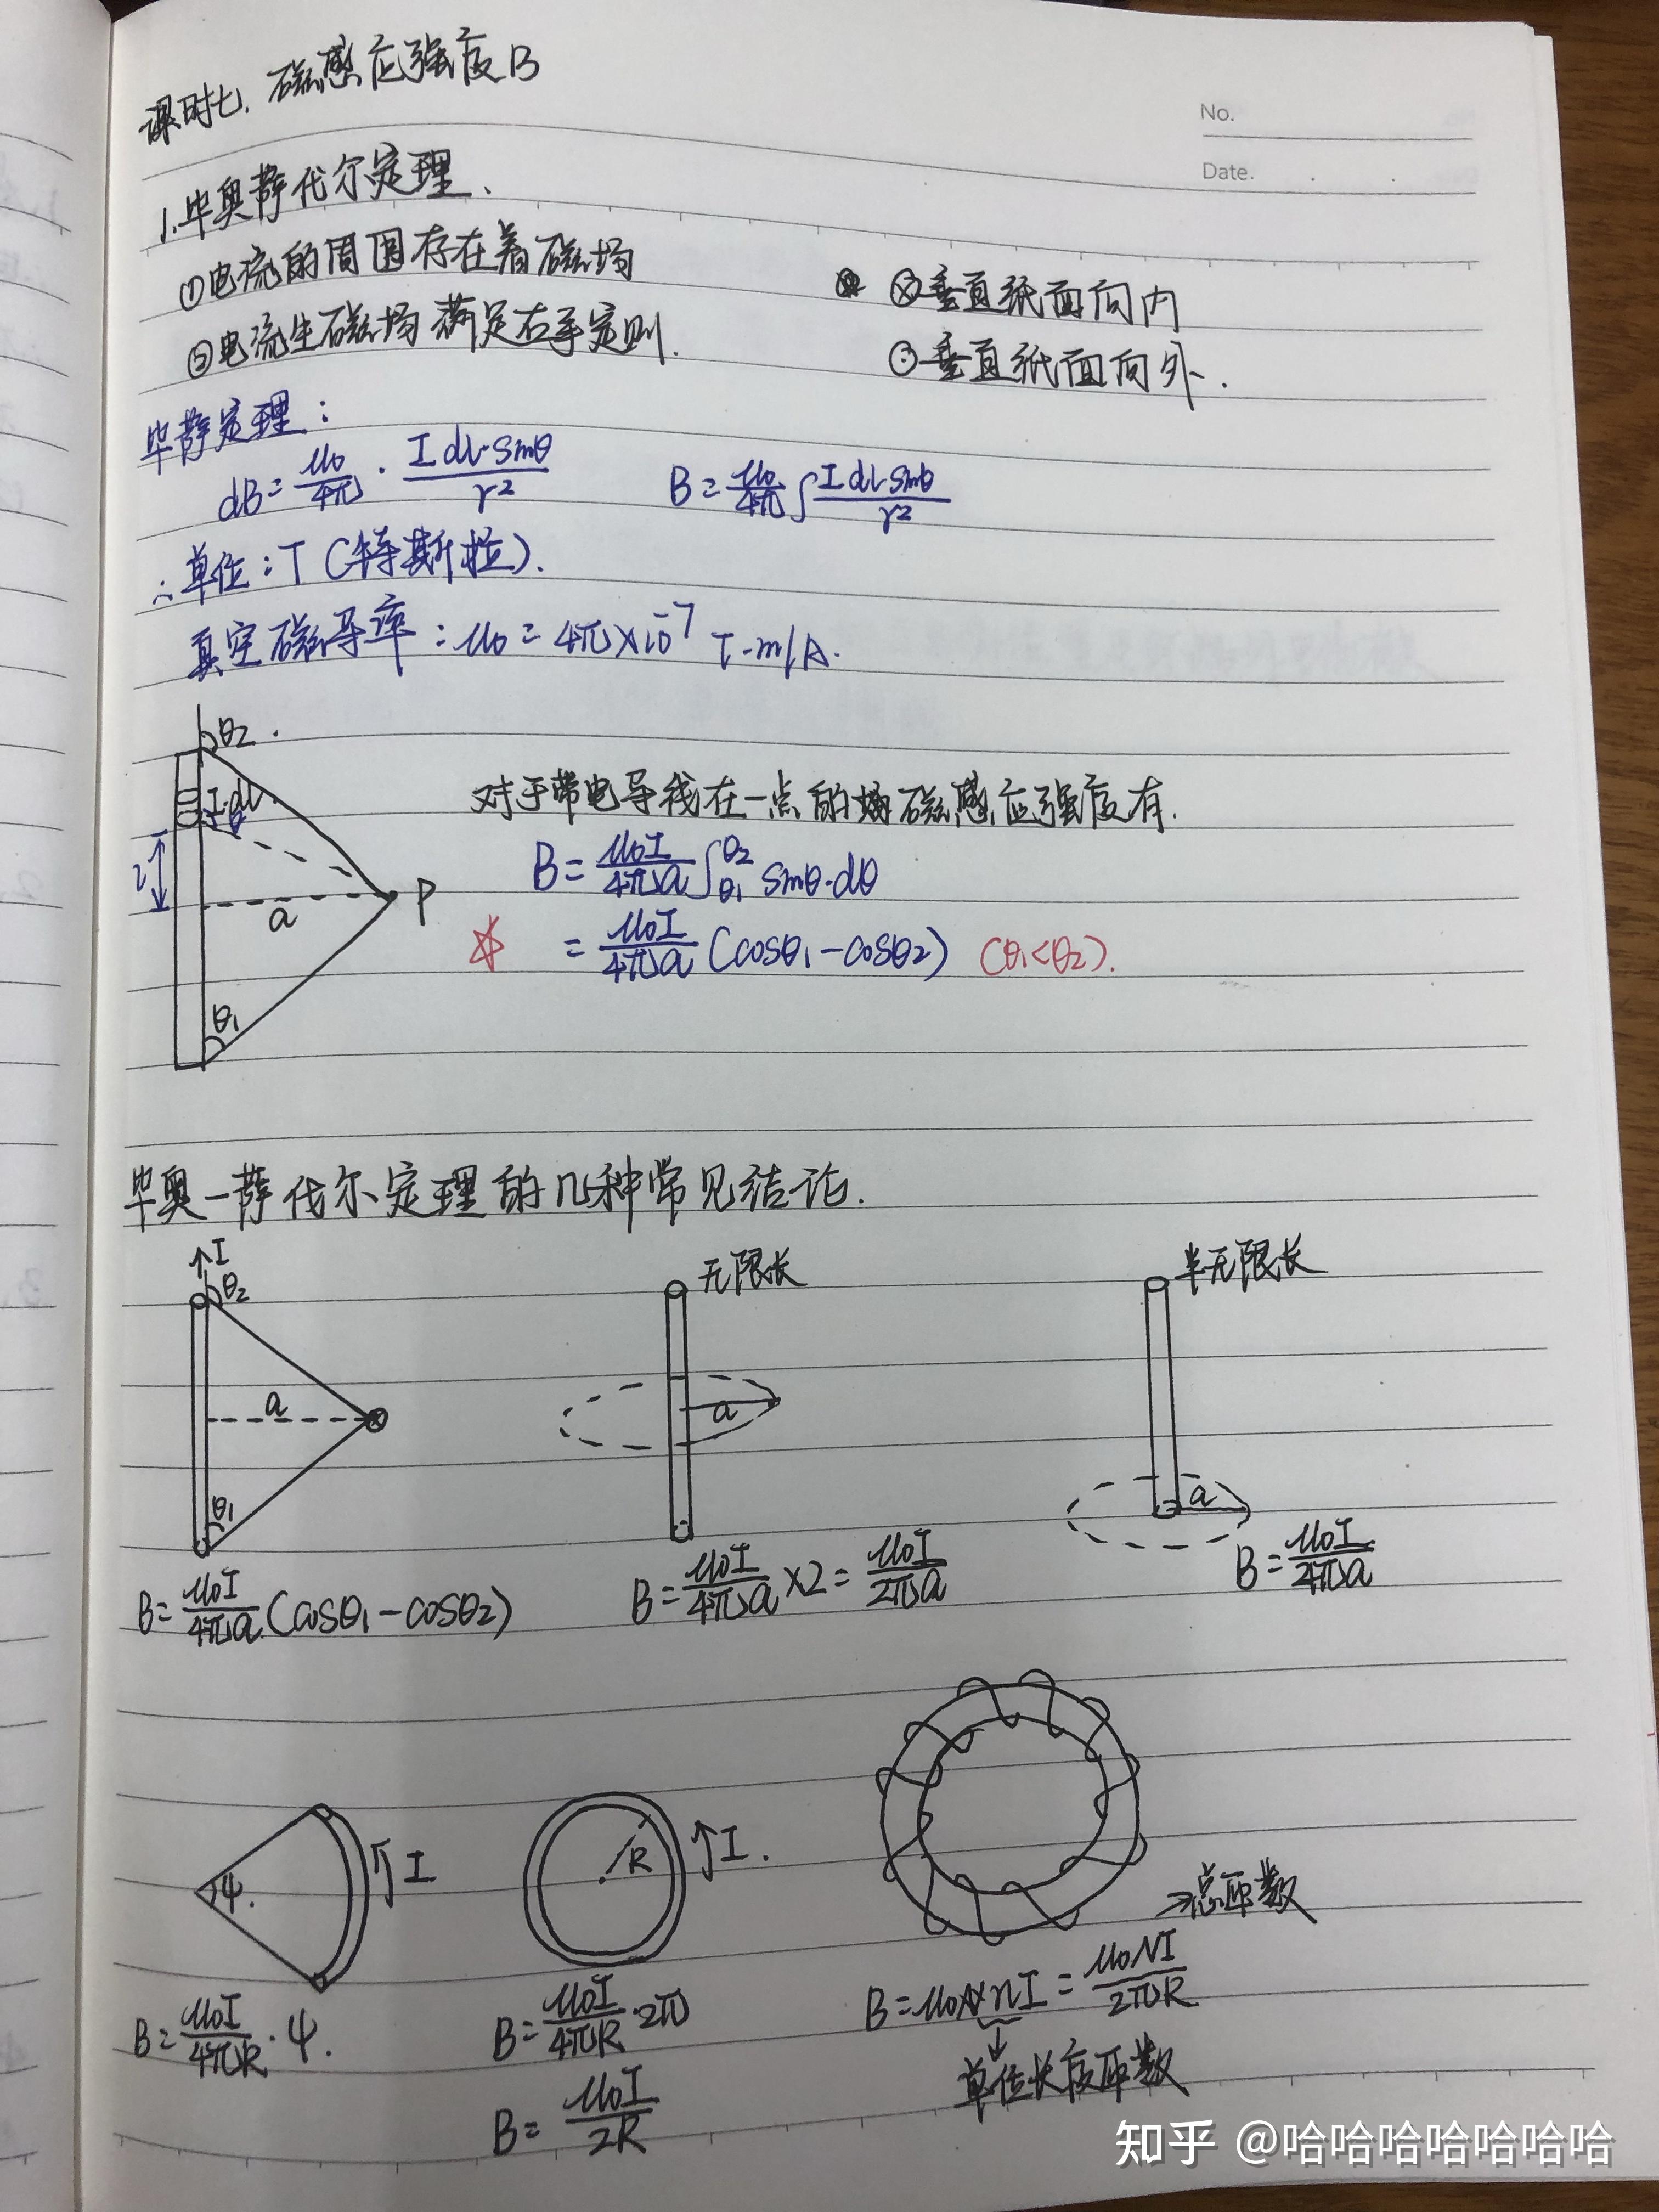 课时七. 磁感应强度B
No.
Date.
1.毕奥萨伐尔定理.
①电流的周围存在着磁场
②电流生磁场满足右手定则.
ⓧ垂直纸面向内
⊙垂直纸面向外.
毕萨定理:
dB=μ₀/4π · Idl·sinθ/r²
B=μ₀/4π ∫ Idl·sinθ/r²
∴单位:T (特斯拉).
真空磁导率:μ₀=4π×10⁻⁷ T·m/A.
θ₂.
Idl
θ
l
a
P
θ₁
对于带电导线在一点的磁感应强度有.
B=μ₀I/4πa ∫θ₁θ₂ sinθ·dθ
☆ =μ₀I/4πa (cosθ₁-cosθ₂) (θ₁<θ₂).
毕奥-萨伐尔定理的几种常见结论.
↑I
θ₂
a
θ₁
B=μ₀I/4πa (cosθ₁-cosθ₂)
无限长
a
B=μ₀I/4πa ×2=μ₀I/2πa
半无限长
a
B=μ₀I/4πa
ψ.
↑I
B=μ₀I/4πR ·ψ.
R
↑I.
B=μ₀I/4πR ·2π
B=μ₀I/2R
→总匝数
B=μ₀nI=μ₀NI/2πR
↓
单位长度匝数
知乎 @哈哈哈哈哈哈哈